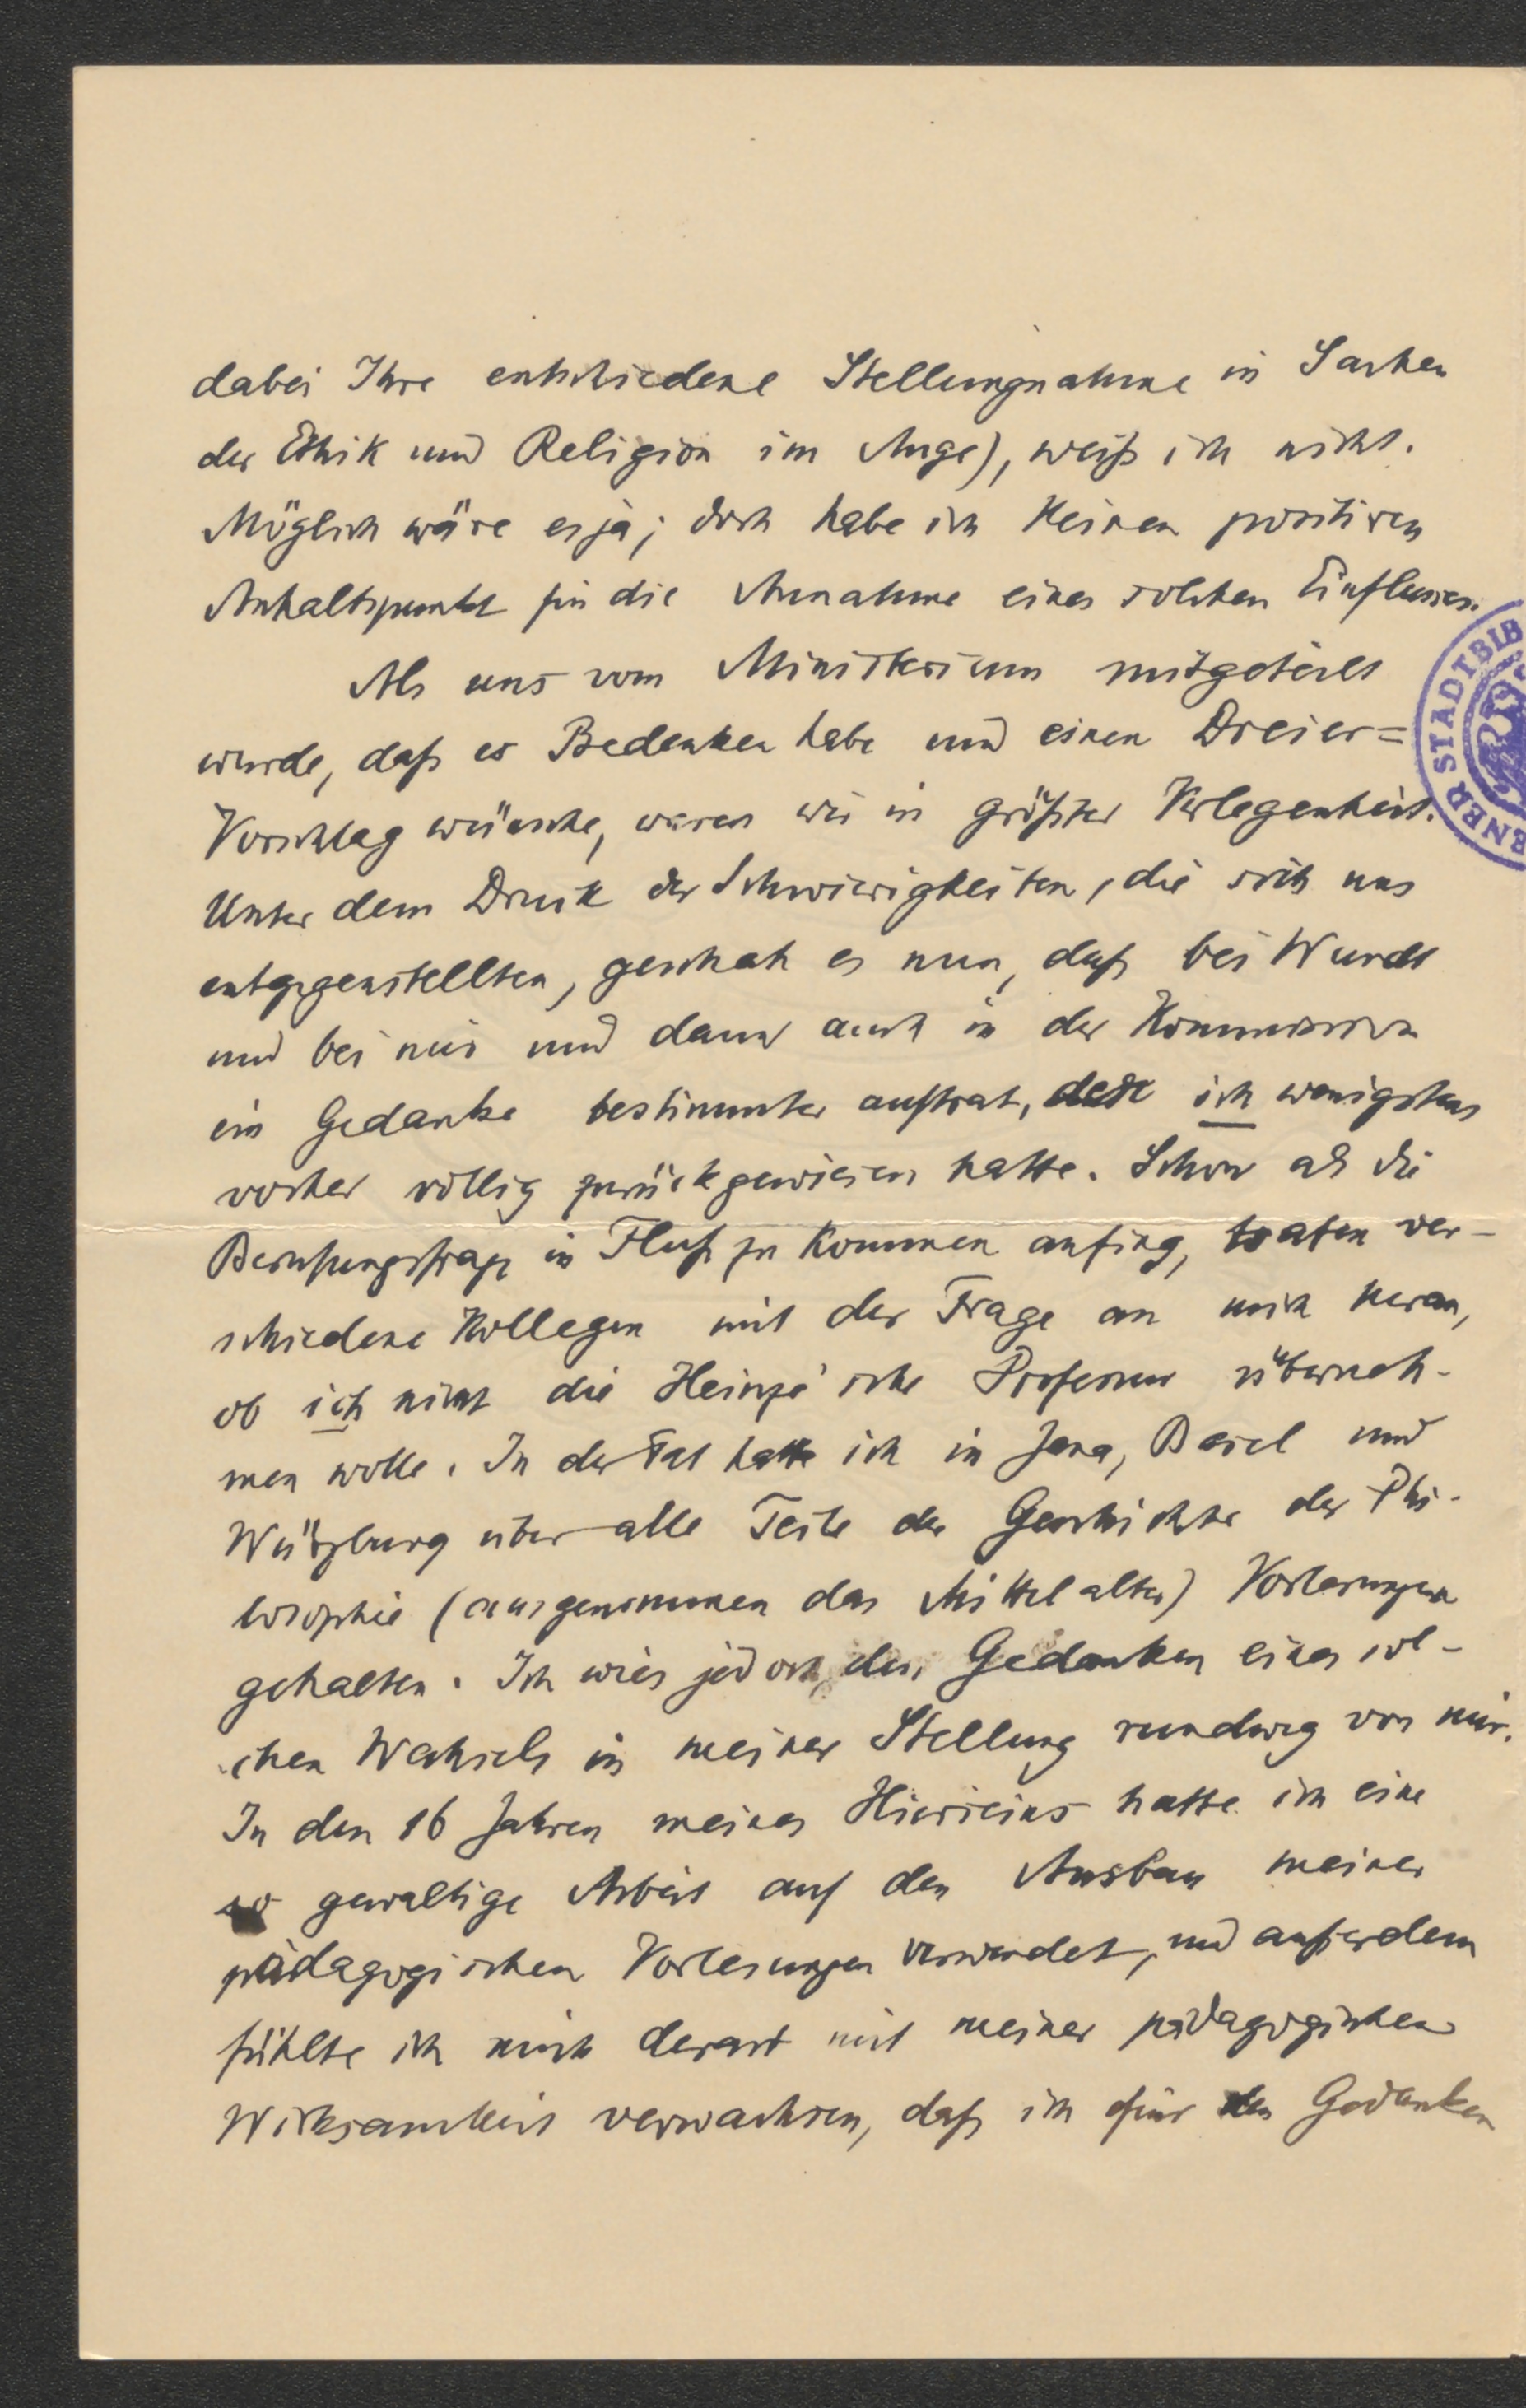 dabei Ihre entschiedene Stellungnahme in Sachen
der Ethik und Religion im Auge), weiß ich nicht.
Möglich wäre es ja; doch habe ich keinen positiven
Anhaltspunkt für die Annahme eines solchen Einflusses.
Als uns vom Ministerium mitgeteilt
wurde, daß es Bedenken habe und einen Dreier=
Vorschlag wünsche, waren wir in größter Verlegenheit.
Unter dem Druck der Schwierigkeiten, die sich uns
entgegenstellten, geschah es nun, daß bei Wundt
und bei mir und dann auch in der Kommission
ein Gedanke bestimmter auftrat, den ich wenigstens
vorher völlig zurückgewiesen hatte. Schon als die
Berufungsfrage in Fluß zu kommen anfing, traten ver-
schiedene Kollegen mit der Frage an mich heran,
ob ich nicht die Heinze'sche Professur überneh-
men wolle. In der Tat hatte ich in Jena, Basel und
Würzburg über alle Teile der Geschichte der Phi-
losophie (ausgenommen das Mittelalter) Vorlesungen
gehalten. Ich wies jedoch den Gedanken eines sol-
chen Wechsels in meiner Stellung rundweg von mir.
In den 16 Jahren meines Hierseins hatte ich eine
so gewaltige Arbeit auf den Ausbau meiner
pädagogischen Vorlesungen verwendet, und außerdem
fühlte ich mich derart mit meiner pädagogischen
Wirksamkeit verwachsen, daß ich für den Gedanken
STADTBIB
ENER